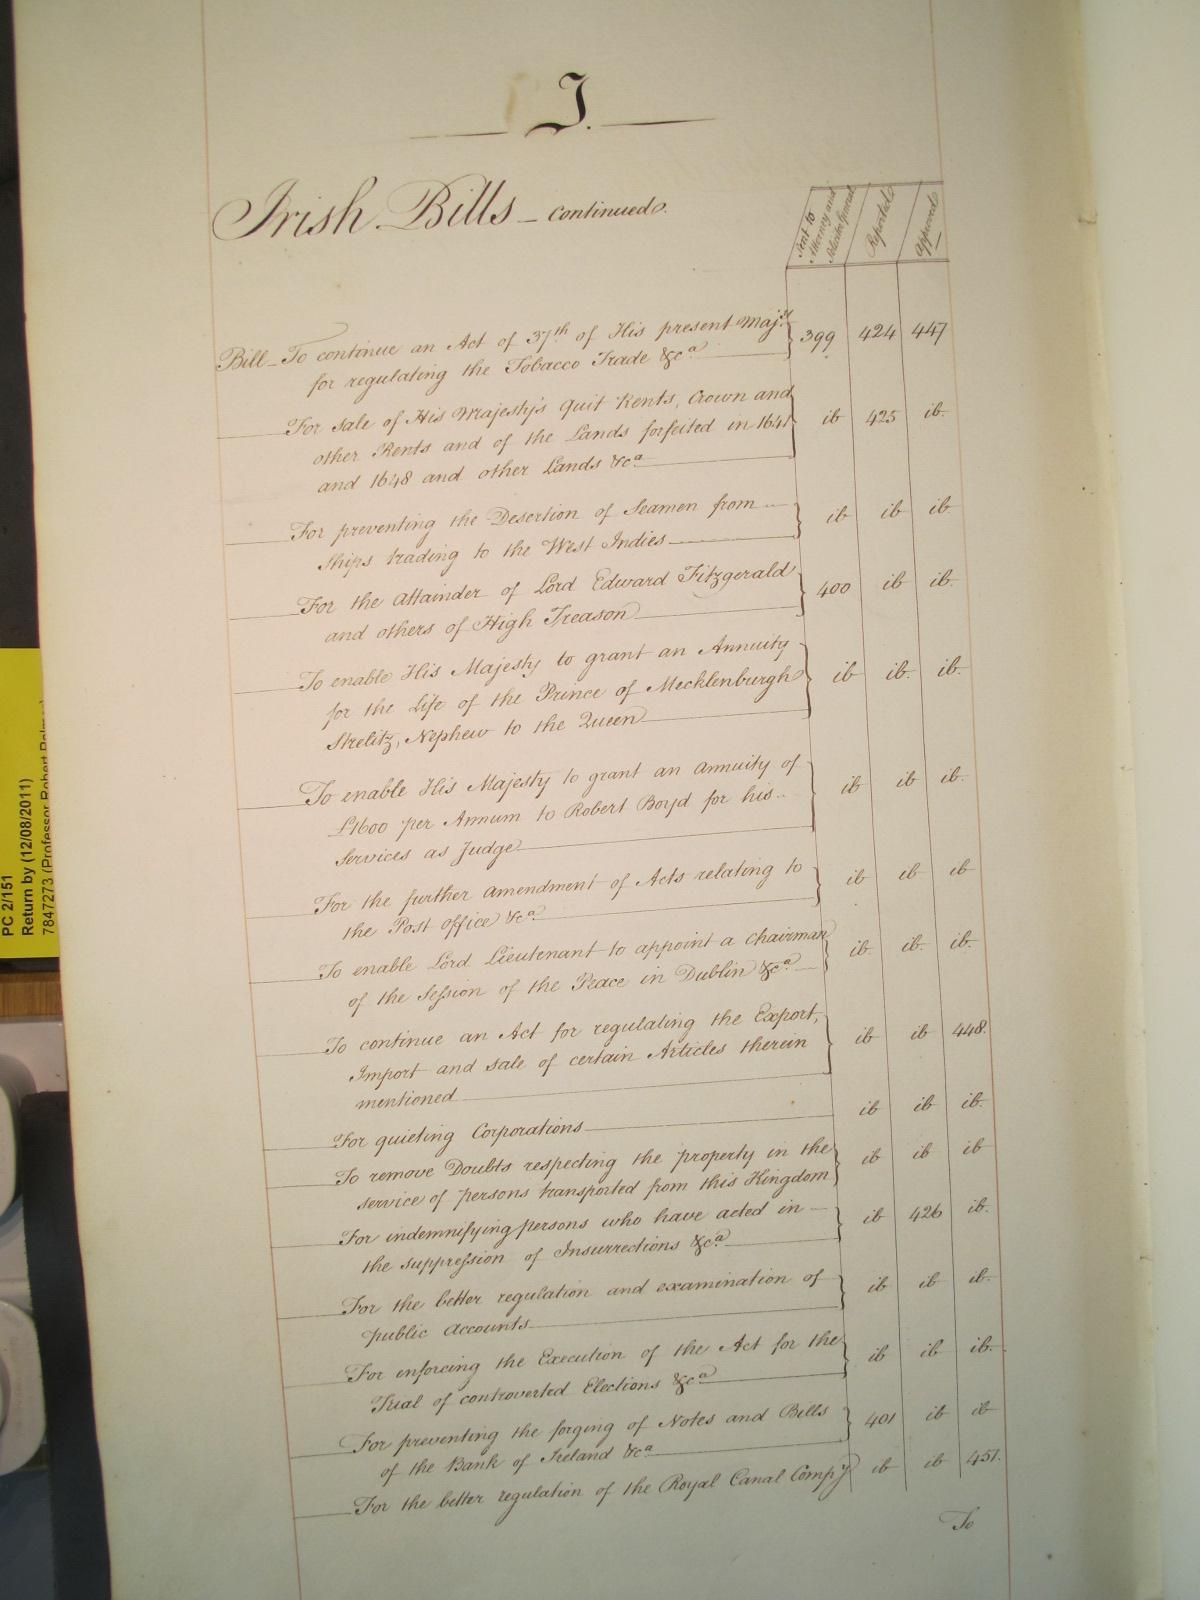 J.
Irish Bills - continued.
Sent to
Attorney and
Solicitor General
Reported
Approved
Bill - To continue an Act of 37th of His present Majty 399 424 447
for regulating the Tobacco Trade &ca
For sale of His Majesty's Quit Rents, Crown and
other Rents and of the Lands forfeited in 1641 ib 425 ib.
and 1648 and other Lands &ca
For preventing the Desertion of Seamen from ib ib ib.
Ships trading to the West Indies
For the Attainder of Lord Edward Fitzgerald 400 ib ib.
and others of High Treason
To enable His Majesty to grant an Annuity
for the Life of the Prince of Mecklenburgh ib ib. ib.
Strelitz, Nephew to the Queen
To enable His Majesty to grant an Annuity of
£1600 per Annum to Robert Boyd for his ib ib ib.
Services as Judge
For the further amendment of Acts relating to ib ib ib
the Post office &ca
To enable Lord Lieutenant to appoint a Chairman ib. ib. ib.
of the Session of the Peace in Dublin &ca
To continue an Act for regulating the Export,
Import and sale of certain Articles therein ib ib 448.
mentioned
For quieting Corporations ib ib ib.
To remove Doubts respecting the property in the ib ib ib
service of persons transported from this Kingdom
For indemnifying persons who have acted in ib 426 ib.
the suppression of Insurrections &ca
For the better regulation and examination of ib ib ib.
public Accounts
For enforcing the Execution of the Act for the ib ib ib.
Trial of controverted Elections &ca
For preventing the forging of Notes and Bills 401 ib ib
of the Bank of Ireland &ca
For the better regulation of the Royal Canal Compy ib ib 451.
To
PC 2/151
Return by (12/08/2011)
7847273 (Professor Robert